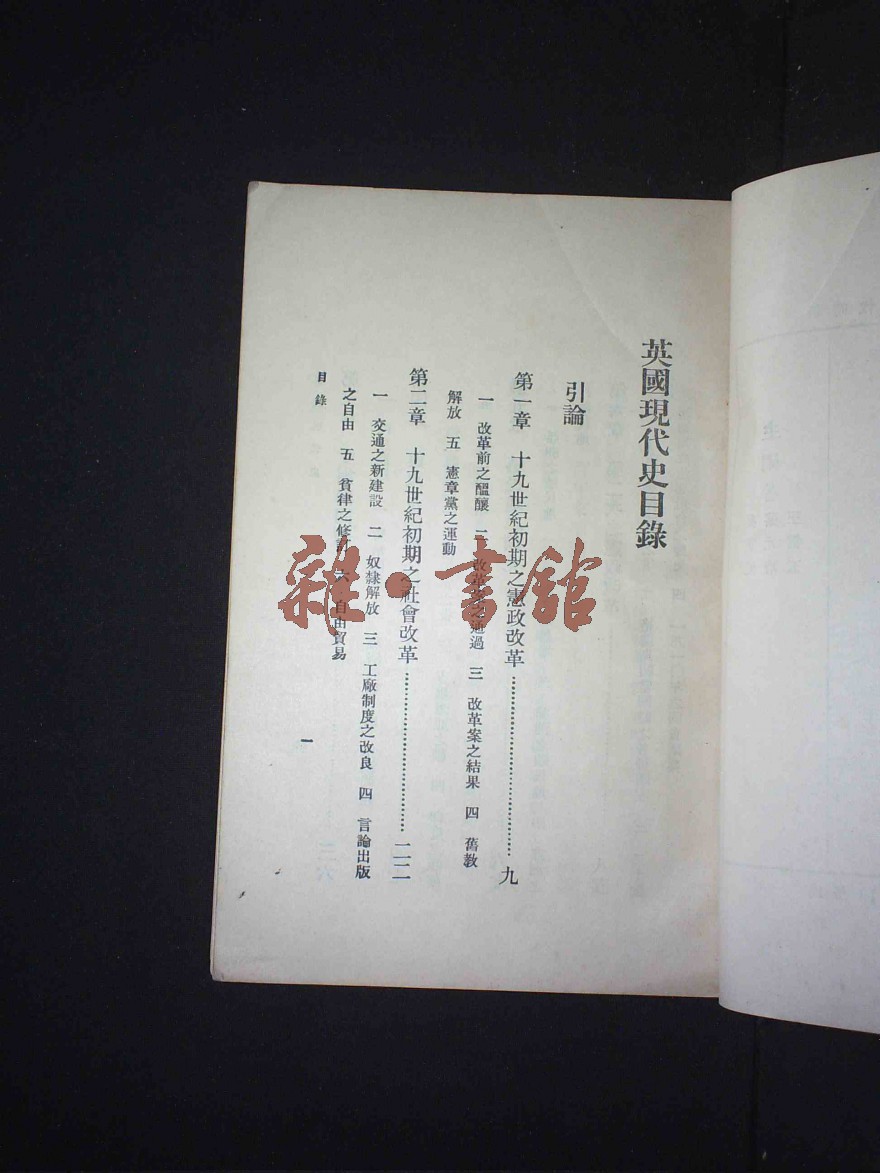 英國現代史目錄
引論
第一章 十九世紀初期之憲政改革……………………九
一 改革前之醞釀 二 改革案之通過 三 改革案之結果 四 舊教
解放 五 憲章黨之運動
第二章 十九世紀初期之社會改革……………………
一 交通之新建設 二 奴隸解放 三 工廠制度之改良 四 言論出版
之自由 五 貧律之修訂 六 自由貿易
目錄 一
雜·書館